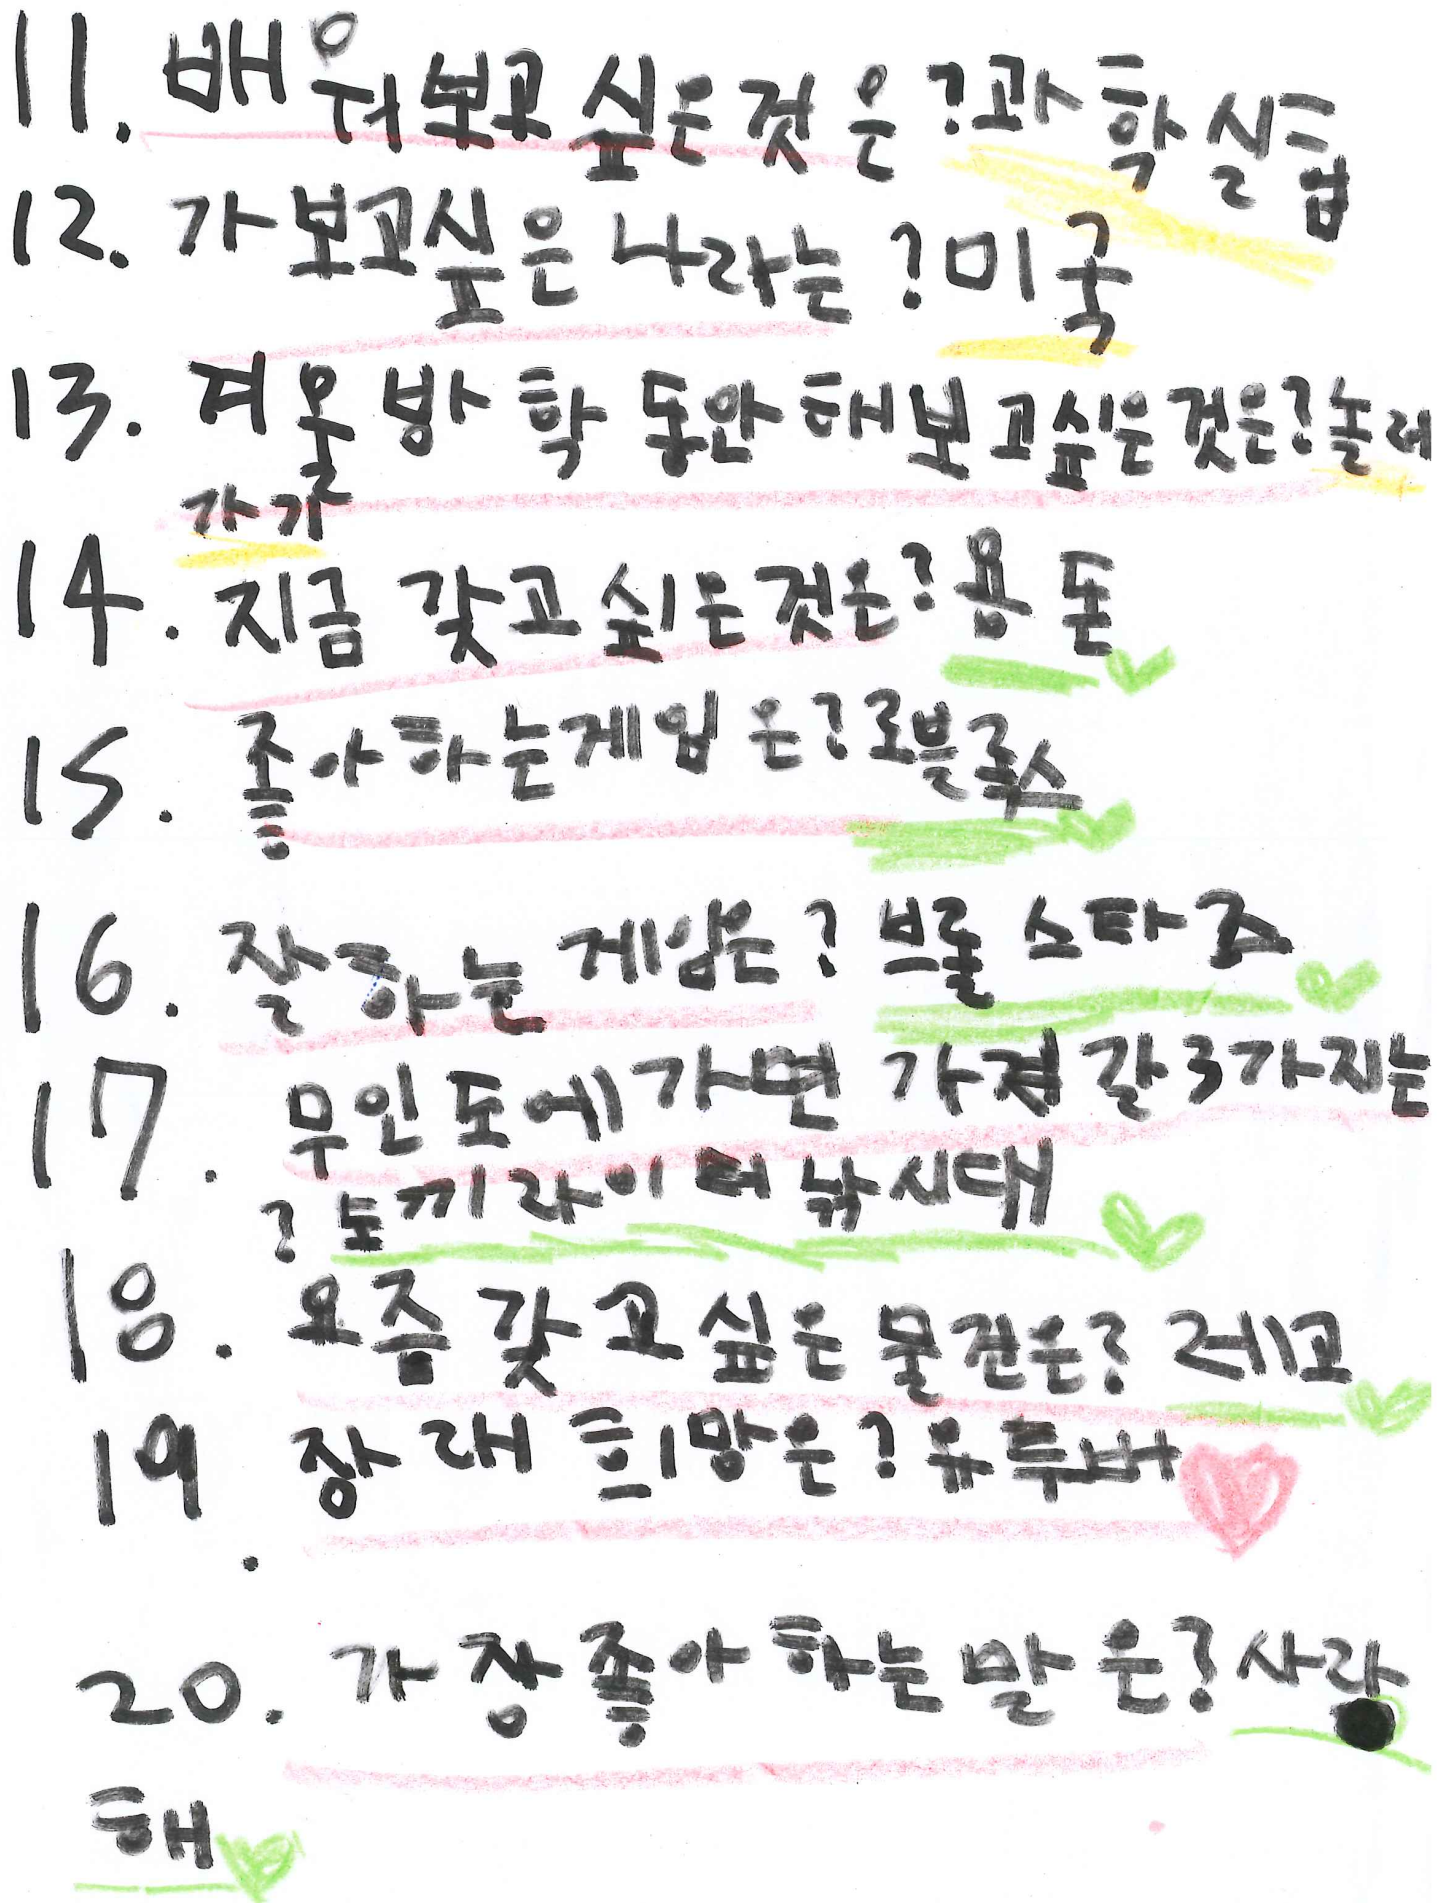 11. 배워보고 싶은것은?과학실험
12. 가보고싶은 나라는?미국
13. 겨울방학동안해보고싶은것은?놀러
가기
14. 지금 갖고싶은것은?용돈
15. 좋아하는게임은?로블록스
16. 잘하는 게임은? 브롤스타즈
17. 무인도에가면 가져갈3가지는
?토끼라이터낚시대
18. 요즘 갖고싶은 물건은? 레고
19. 장래 희망은?유투버
20. 가장좋아하는말은?사랑
해